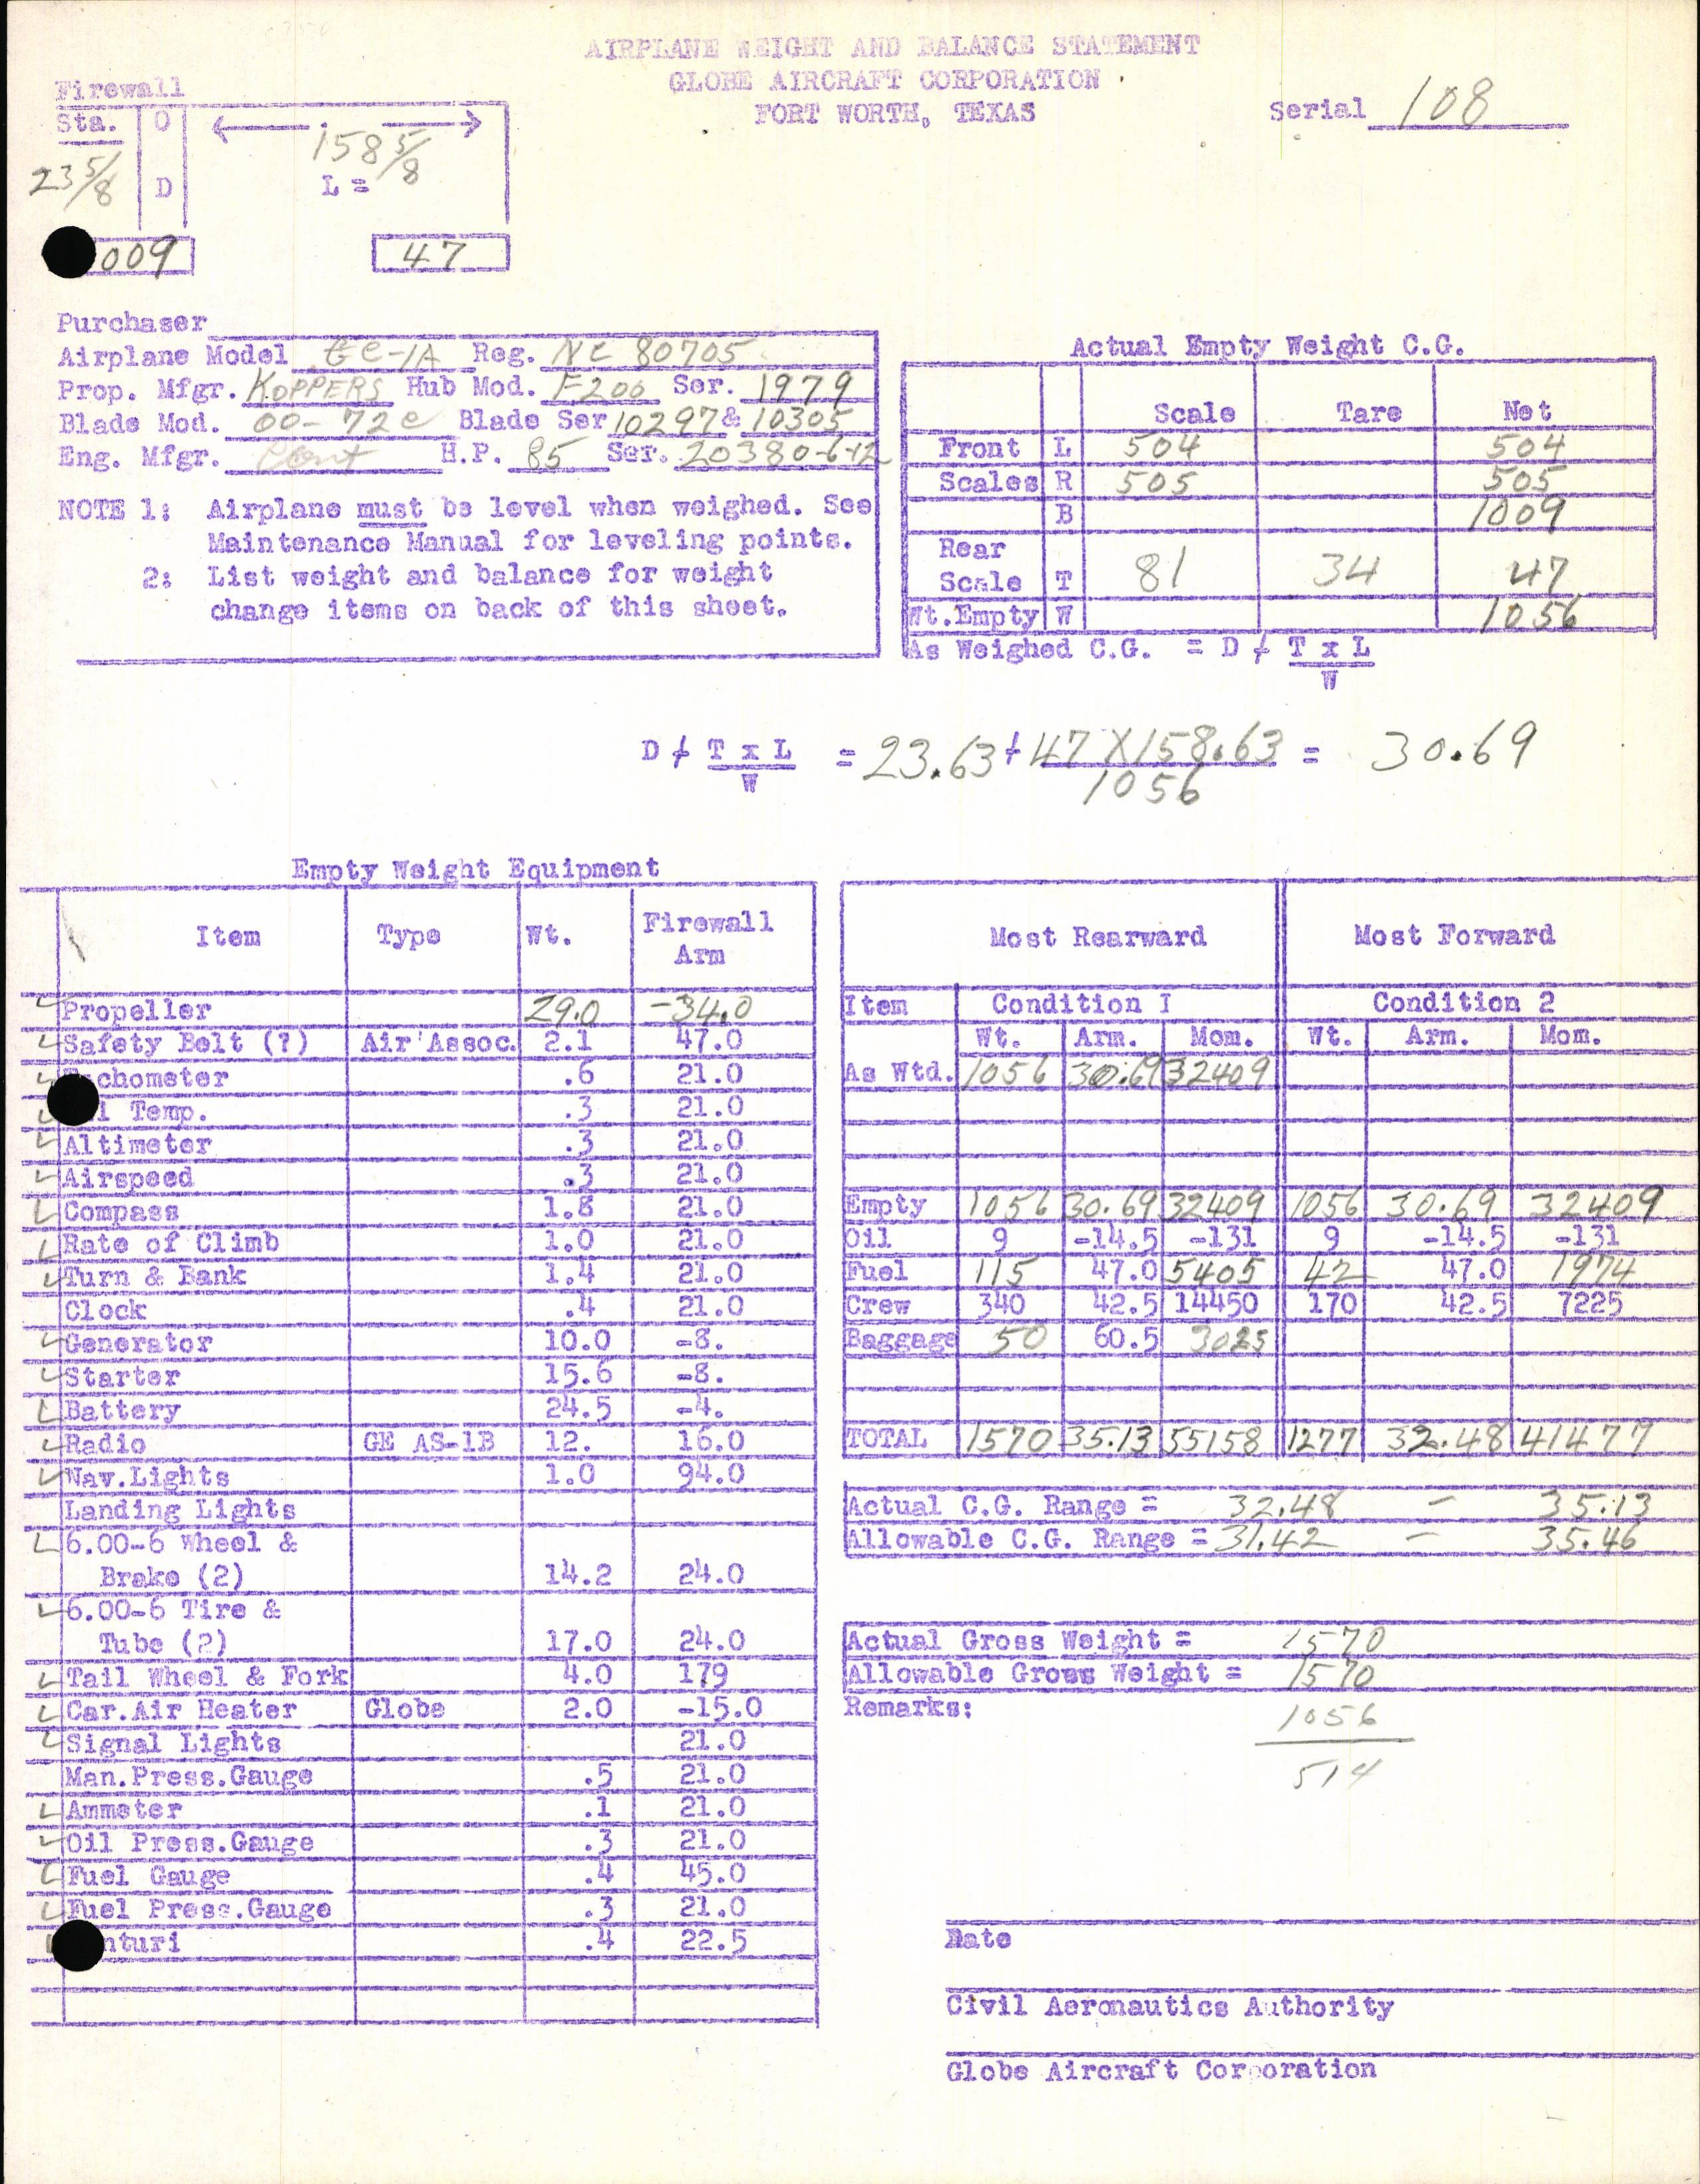 AIRPLANE WEIGHT AND BALANCE STATEMENT
GLOBE AIRCRAFT CORPORATION
FORT WORTH, TEXAS
Serial 108
Firewall
Sta. 0
158 5/8
23 5/8 D L =
009 47
Purchaser
Airplane Model GC-1A Reg. NC 80705
Prop. Mfgr. KOPPERS Hub Mod. F200 Ser. 1979
Blade Mod. 00-72e Blade Ser 10297 & 10305
Eng. Mfgr. Cont H.P. 85 Ser. 20380-6-12
NOTE 1: Airplane must be level when weighed. See
Maintenance Manual for leveling points.
2: List weight and balance for weight
change items on back of this sheet.
Actual Empty Weight C.G.
Scale Tare Net
Front L 504 504
Scales R 505 505
B 1009
Rear
Scale T 81 34 47
Wt.Empty W 1056
As Weighed C.G. = D + T x L
W
D + T x L = 23.63 + 47 X 158.63 = 30.69
W 1056
Empty Weight Equipment
Item Type Wt. Firewall
Arm
Propeller 29.0 -34.0
Safety Belt (?) Air Assoc. 2.1 47.0
chometer .6 21.0
l Temp. .3 21.0
Altimeter .3 21.0
Airspeed .3 21.0
Compass 1.8 21.0
Rate of Climb 1.0 21.0
Turn & Bank 1.4 21.0
Clock .4 21.0
Generator 10.0 -8.
Starter 15.6 -8.
Battery 24.5 -4.
Radio GE AS-1B 12. 16.0
Nav.Lights 1.0 94.0
Landing Lights
6.00-6 Wheel &
Brake (2) 14.2 24.0
6.00-6 Tire &
Tube (2) 17.0 24.0
Tail Wheel & Fork 4.0 179
Car.Air Heater Globe 2.0 -15.0
Signal Lights 21.0
Man.Press.Gauge .5 21.0
Ammeter .1 21.0
Oil Press.Gauge .3 21.0
Fuel Gauge .4 45.0
Fuel Press.Gauge .3 21.0
nturi .4 22.5
Most Rearward Most Forward
Item Condition I Condition 2
Wt. Arm. Mom. Wt. Arm. Mom.
As Wtd. 1056 30.69 32409
Empty 1056 30.69 32409 1056 30.69 32409
Oil 9 -14.5 -131 9 -14.5 -131
Fuel 115 47.0 5405 42 47.0 1974
Crew 340 42.5 14450 170 42.5 7225
Baggage 50 60.5 3025
TOTAL 1570 35.13 55158 1277 32.48 41477
Actual C.G. Range = 32.48 - 35.13
Allowable C.G. Range = 31.42 - 35.46
Actual Gross Weight = 1570
Allowable Gross Weight = 1570
Remarks: 1056
514
Date
Civil Aeronautics Authority
Globe Aircraft Corporation